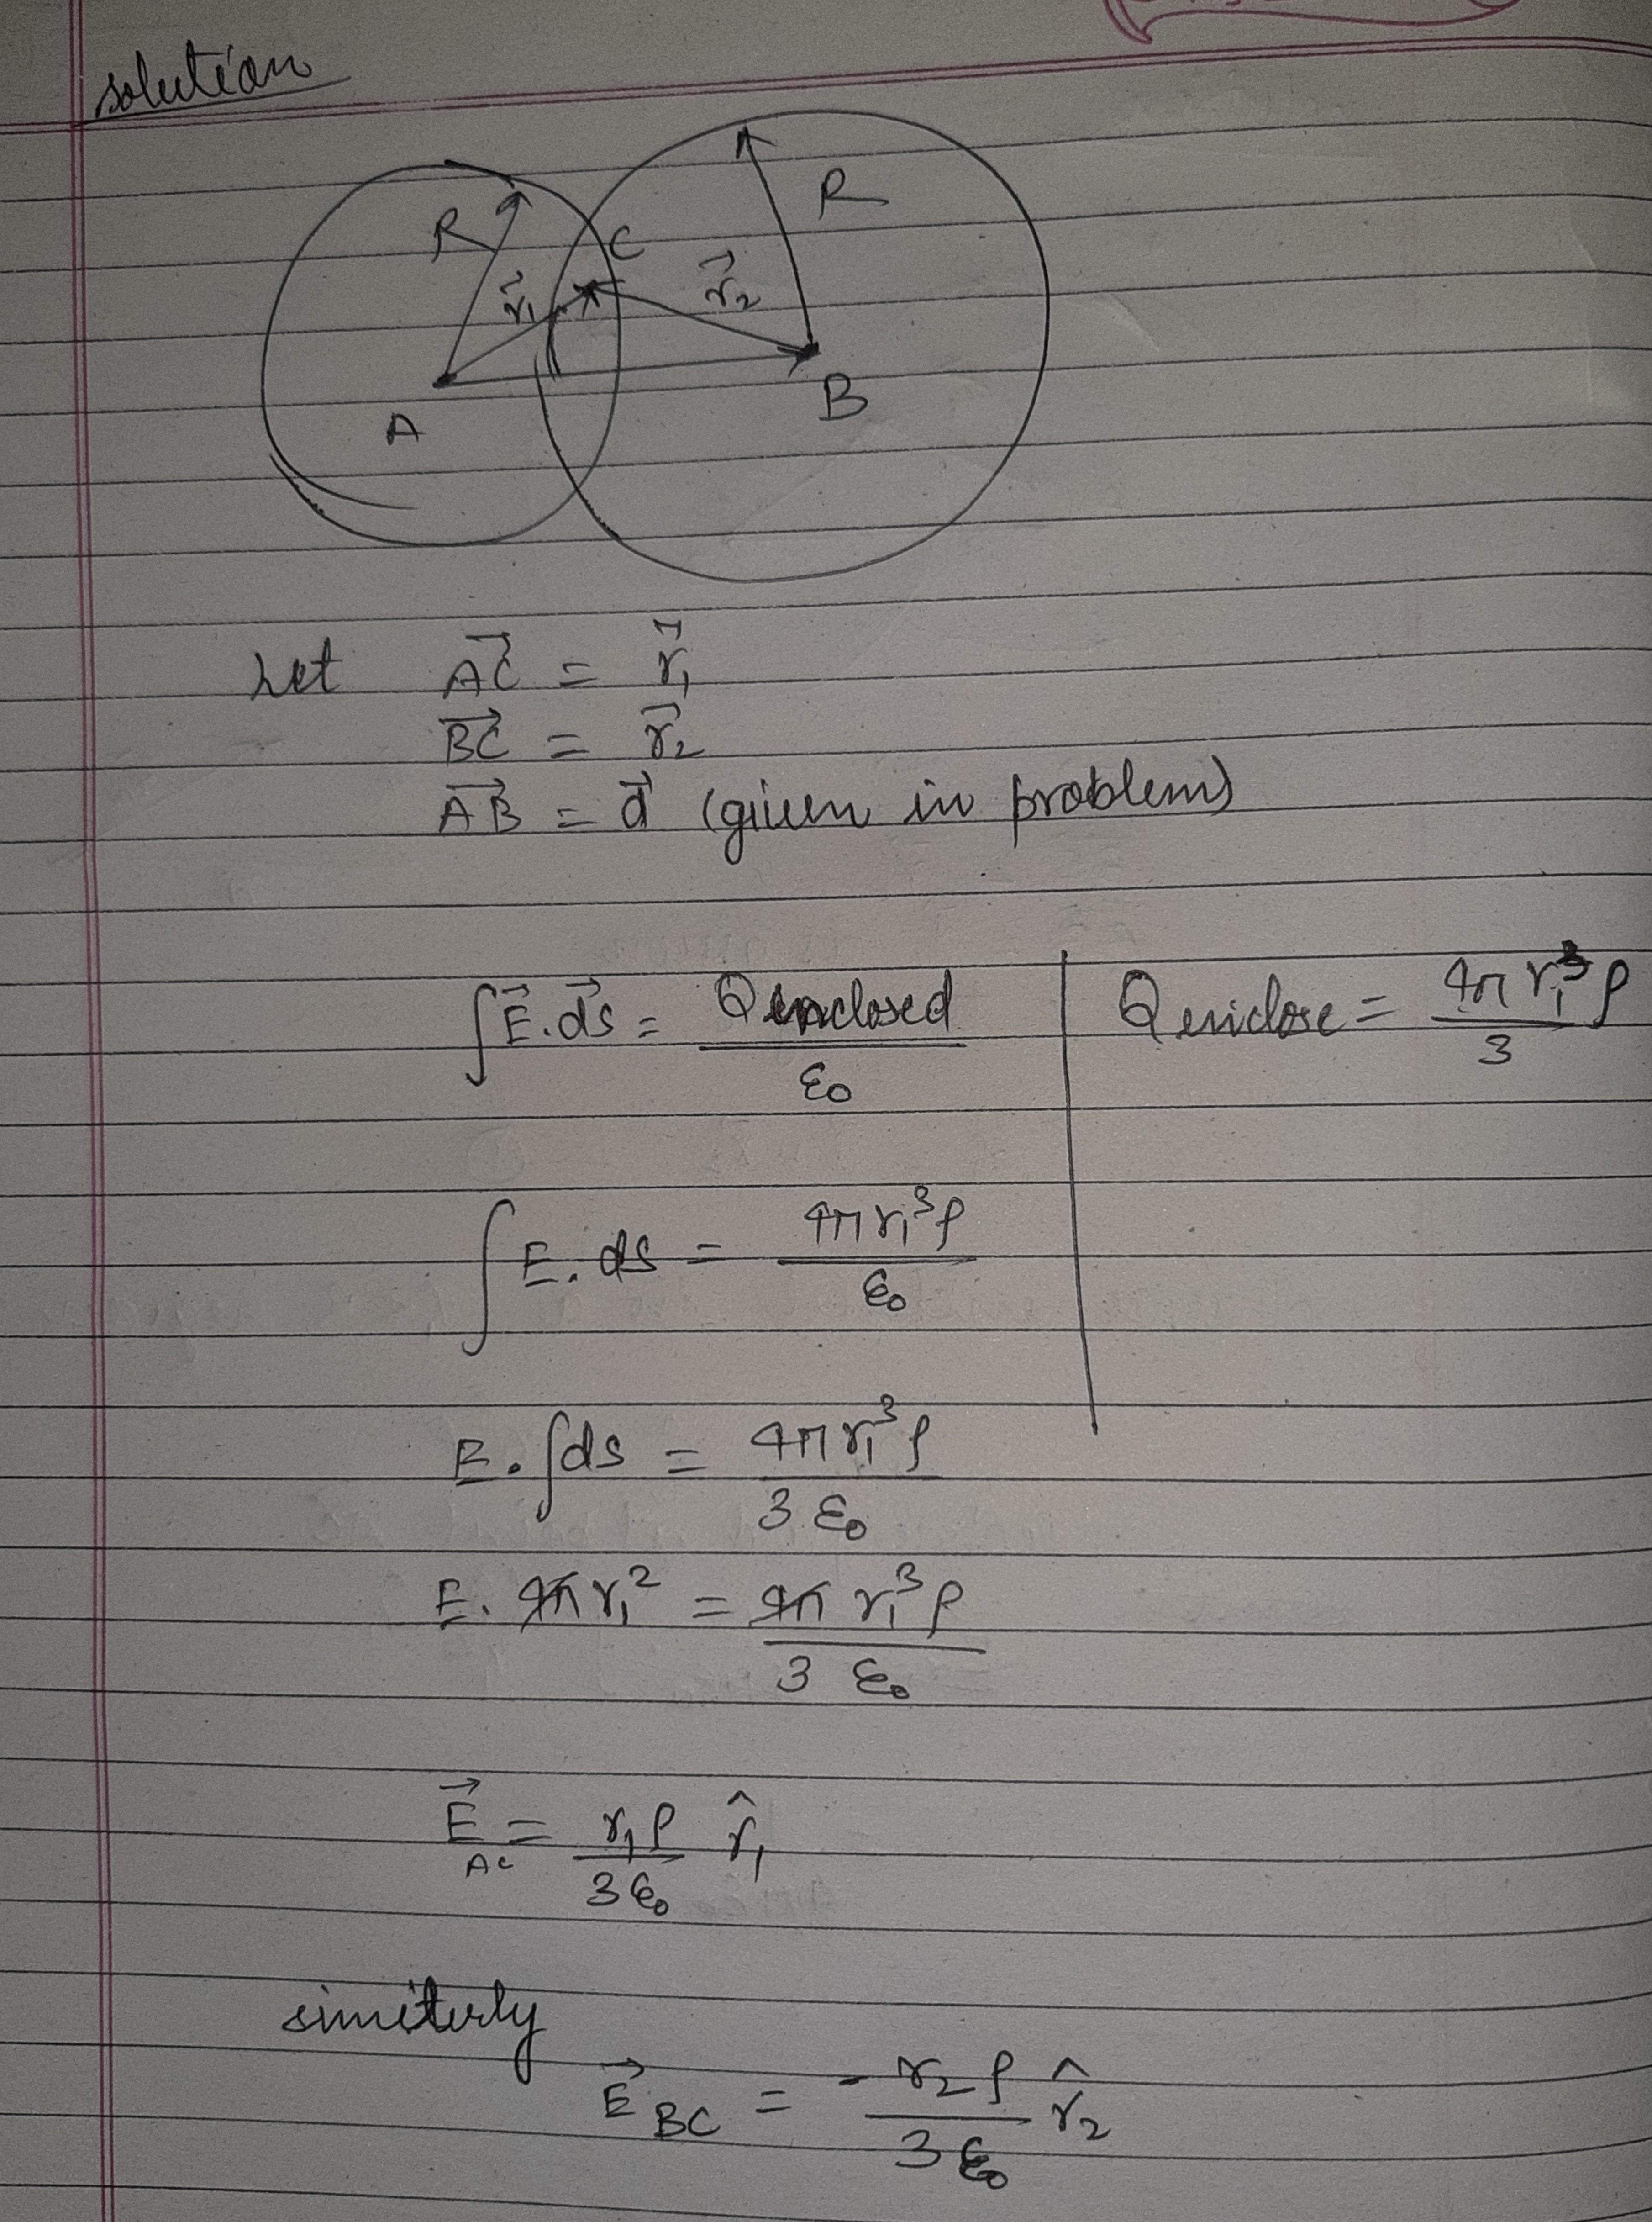 solution
R
R
C
r⃗₁
r⃗₂
A
B
Let A⃗C = r⃗₁
B⃗C = r⃗₂
A⃗B = d⃗ (given in problem)
∫E⃗.d⃗s = Q enclosed / ε₀ | Q enclose = 4π r₁³ ρ / 3
∫E.ds = 4π r₁³ ρ / ε₀
E.∫ds = 4π r₁³ ρ / 3 ε₀
E. 4π r₁² = 4π r₁³ ρ / 3 ε₀
E⃗ AC = r₁ ρ / 3 ε₀ r̂₁
similarly
E⃗ BC = - r₂ ρ / 3 ε₀ r̂₂